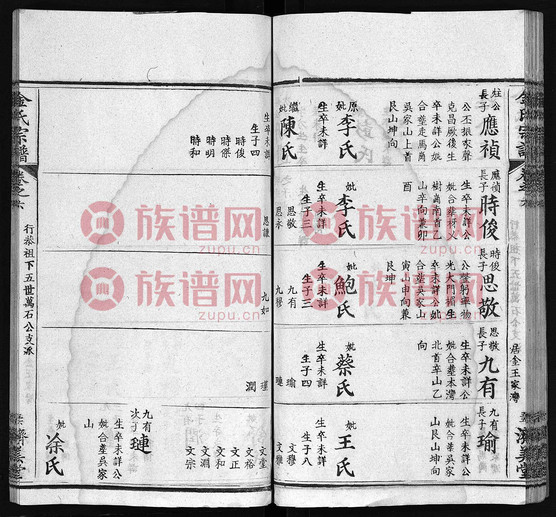 金氏宗譜
卷之六
居金王家灣
濟美堂
長子
應禎
公丕振家聲
克昌厥後生
卒未詳公妣
合塟走馬崗
吳家山上首
艮山坤向
原妣
李氏
生卒未詳
繼妣
陳氏
生卒未詳
生子四
時俊
時傑
時明
時和
應禎
長子
時俊
生卒未詳公
妣合塟楊汊
樹崗南首乙
山辛向兼卯
酉
妣
李氏
生卒未詳
生子三
思敬
思永
思謙
時俊
長子
思敬
公盤躬率物
光大門楣生
卒未詳公妣
合塟吳家山
寅山申向兼
艮坤
妣
鮑氏
生卒未詳
生子三
九有
九得
九如
思敬
長子
九有
生卒未詳公
妣合塟本灣
北首辛山乙
向
妣
蔡氏
生卒未詳
生子四
瑜
璉
瑾
潤
九有
長子
瑜
生卒未詳公
妣合塟吳家
山艮山坤向
妣
王氏
生卒未詳
生子八
文穆
文雅
文堂
文裕
文正
文和
文淵
文宗
九有
次子
璉
生卒未詳公
妣合塟吳家
山
妣
涂氏
金氏宗譜
卷之六
行叅祖下五世萬石公支派
濟美堂
族谱网
zupu.cn
族谱网
zupu.cn
族谱网
zupu.cn
族谱网
zupu.cn